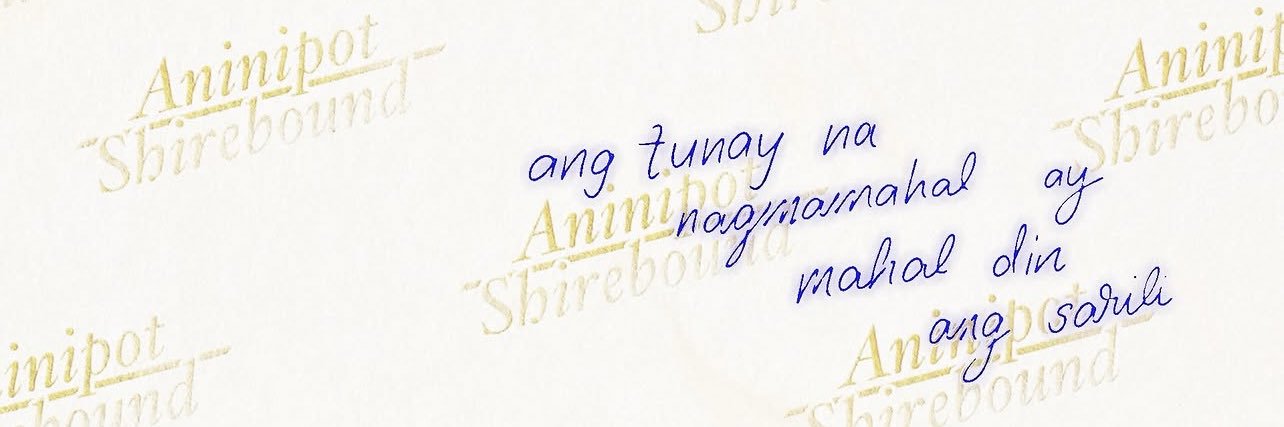 Shirebound
Aninipot
Shirebound
Aninipot
Shirebound
ang tunay na
nagmamahal ay
mahal din
ang sarili
Aninipot
Shirebound
Aninipot
Shirebound
Aninipot
Shirebound